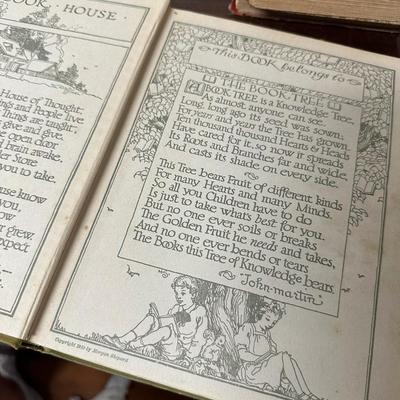 OOK HOUSE
House of Thought,
ngs and People live
Things are taught,
give and give
open door
brain awake,
der Store
you to take.
use know
you,
r grew.
expect
This BOOK belongs to
THE BOOK TREE
A BOOK TREE is a Knowledge Tree,
As almost anyone can see.
Long, long ago its seed was sown;
For years and years the Tree has grown.
Ten thousand thousand Hearts & Heads
Have cared for it, so now it spreads
Its Roots and Branches far and wide,
And casts its shade on every side.
This Tree bears Fruit of different kinds
For many Hearts and many Minds.
So all you Children have to do
Is just to take what's best for you.
But no one ever soils or breaks
The Golden Fruit he needs and takes,
And no one ever bends or tears
The Books this Tree of Knowledge bears.
"John-martin"
by Morgan Shepard